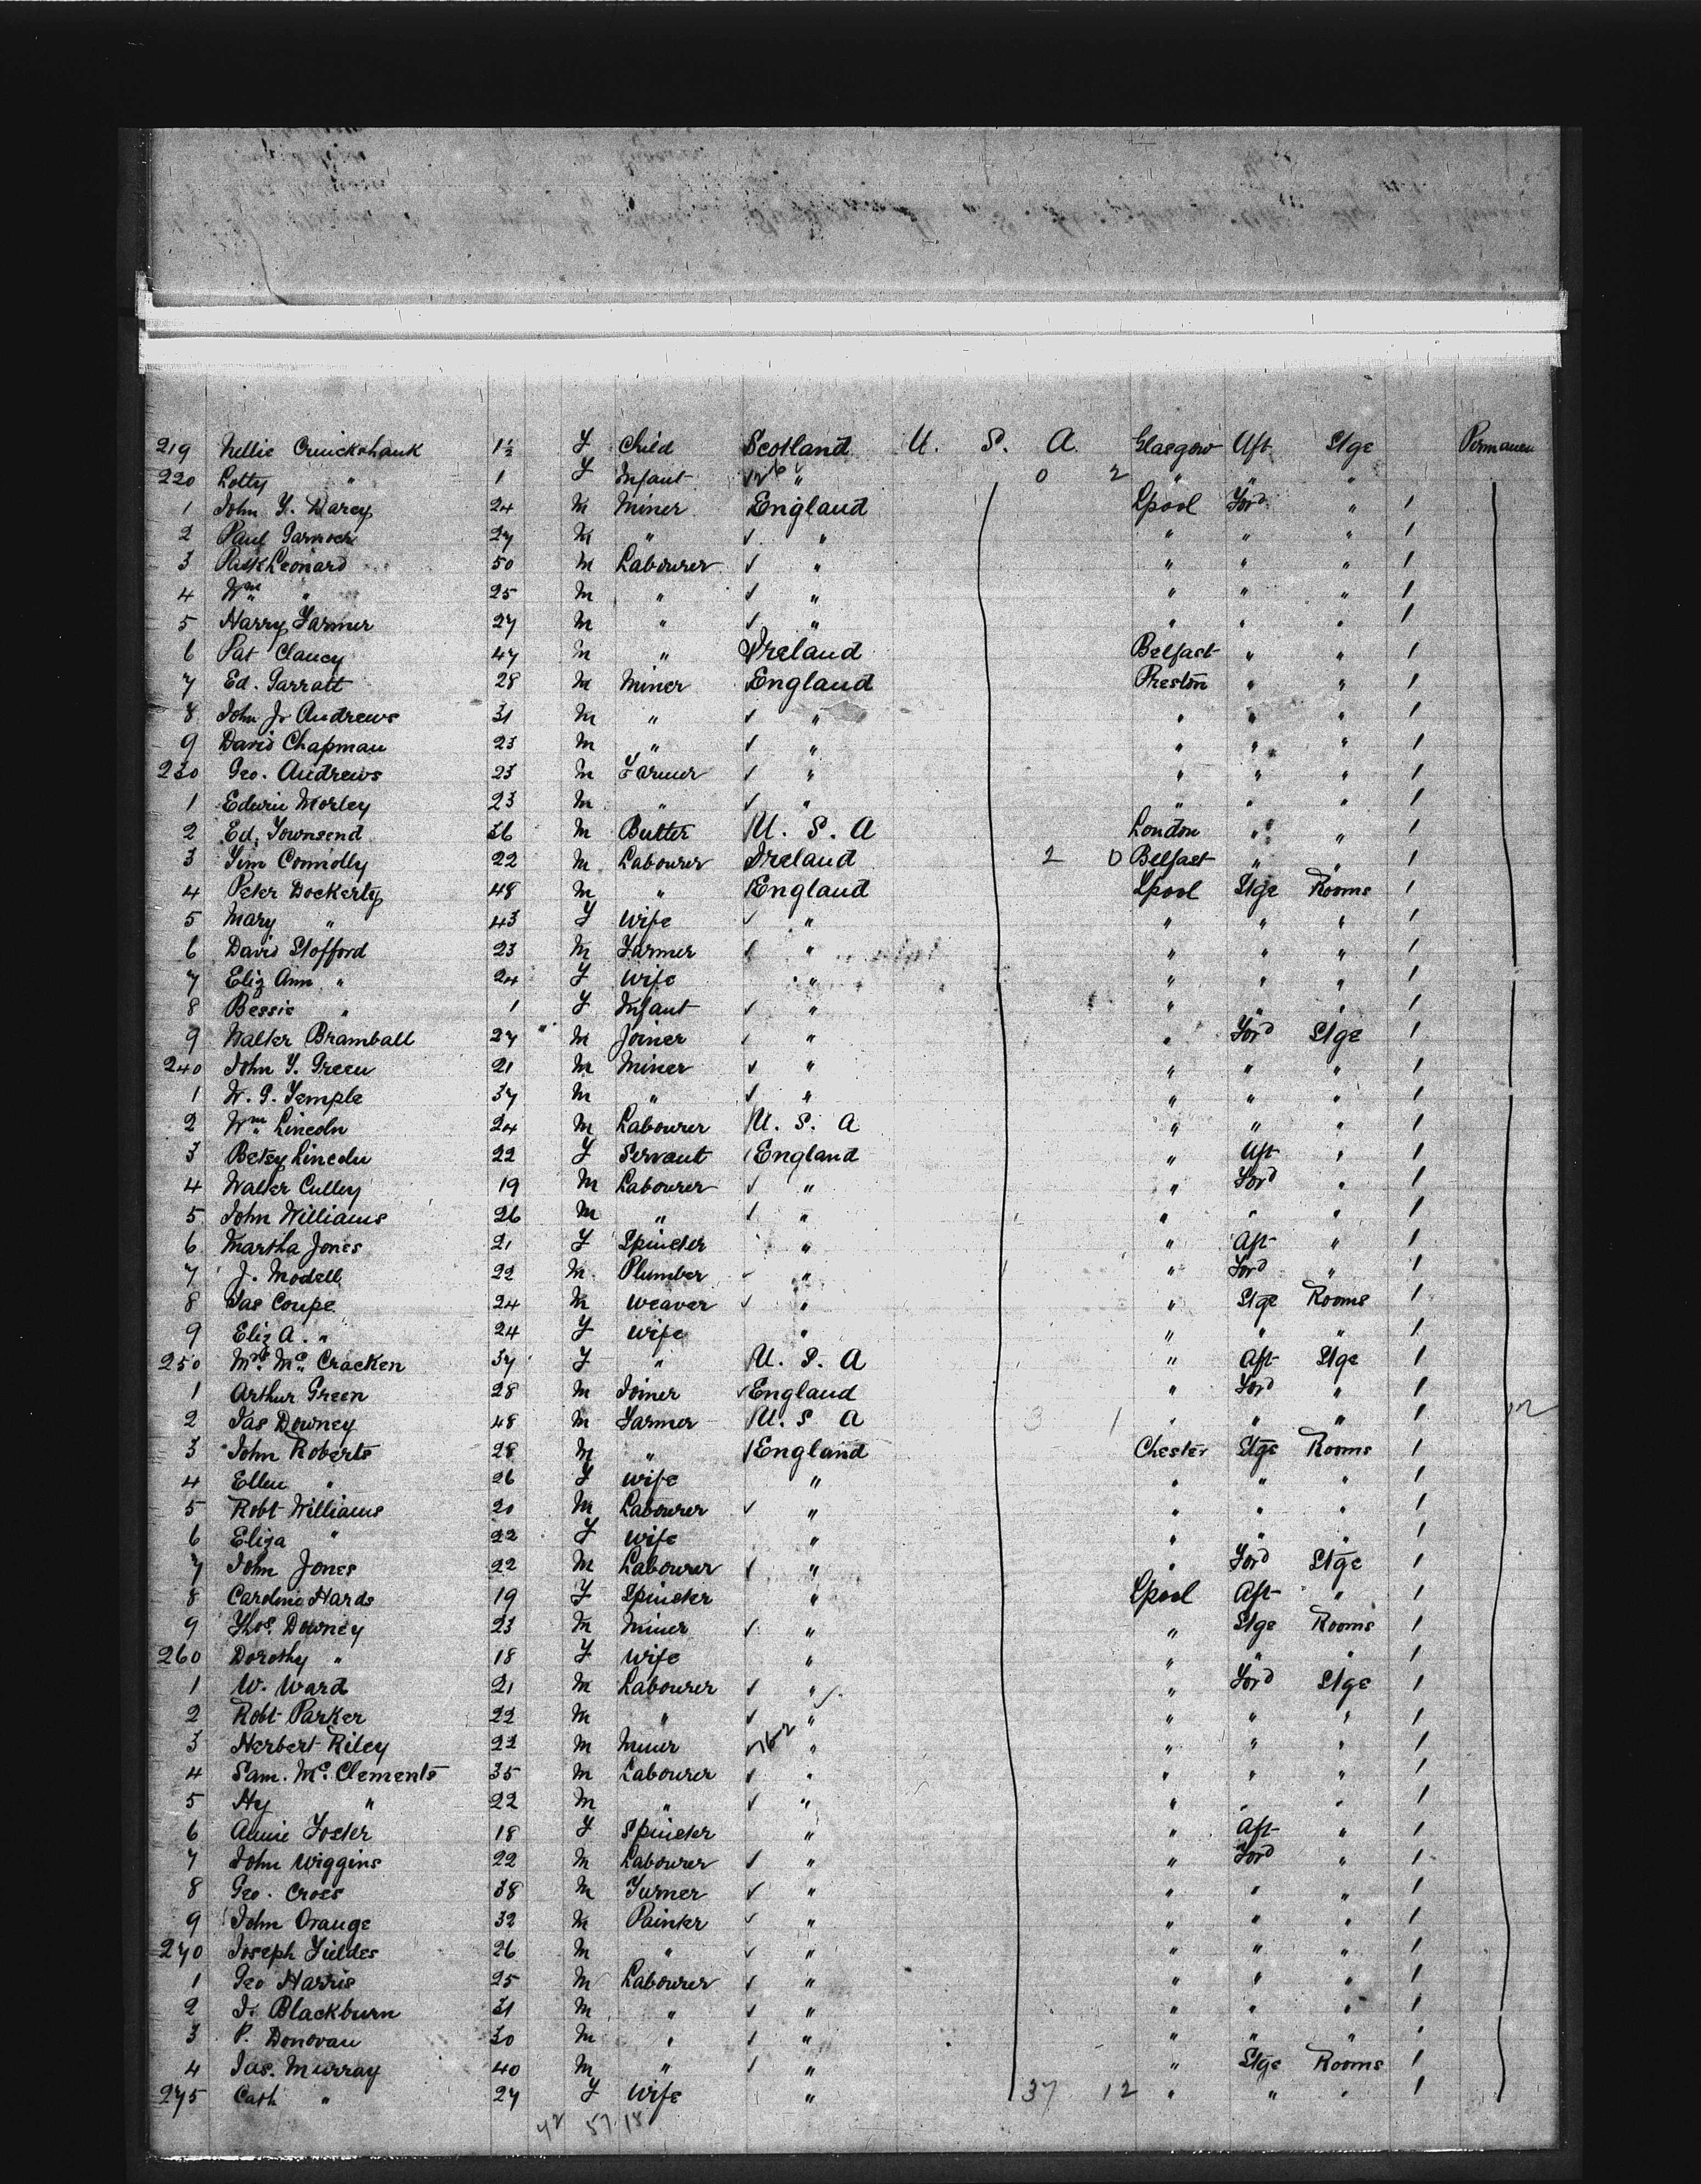 219 Nellie Cruickshank 1½ F Child Scotland U. S. A. Glasgow Aft Stge Permanen
220 Lotty " 1 F Infant " 0 2 " " "
1 John F. Darcy 24 M Miner England Lpool Ford " 1
2 Paul Garnock 27 M " ✓ " " " " 1
3 Patk Leonard 50 M Labourer ✓ " " " " 1
4 Wm " 25 M " ✓ " " " " 1
5 Harry Farmer 27 M " ✓ " " " " 1
6 Pat Clancy 47 M " Ireland Belfast " " 1
7 Ed. Garratt 28 M Miner England Preston " " 1
8 John Jr Andrews 31 M " ✓ " " " " 1
9 David Chapman 23 M " ✓ " " " " 1
230 Geo. Andrews 23 M Farmer ✓ " " " " 1
1 Edwin Morley 23 M " ✓ " " " " 1
2 Ed. Townsend 36 M Butter U. S. A London " " 1
3 Tim Connolly 22 M Labourer Ireland 2 0 Belfast " " 1
4 Peter Dockerty 48 M " England Lpool Stge Rooms 1
5 Mary " 43 F Wife ✓ " " " " 1
6 David Stofford 23 M Farmer ✓ " " " " 1
7 Eliz Ann " 24 F Wife " " " " 1
8 Bessie " 1 F Infant ✓ " " " " 1
9 Walter Bramball 27 M Joiner ✓ " " Ford Stge 1
240 John Y. Green 21 M Miner ✓ " " " " 1
1 W. G. Temple 37 M " ✓ " " " " 1
2 Wm Lincoln 24 M Labourer U. S. A " " " 1
3 Betsy Lincoln 22 F Servant England " Aft " 1
4 Walter Culley 19 M Labourer ✓ " " Ford " 1
5 John Williams 26 M " ✓ " " " " 1
6 Martha Jones 21 F Spinster " " Aft " 1
7 J. Modell 22 M Plumber ✓ " " Ford " 1
8 Jas Coupe 24 M Weaver ✓ " " Stge Rooms 1
9 Eliz A. " 24 F Wife " " " " 1
250 Mrs Mc Cracken 37 F " U. S. A " Aft Stge 1
1 Arthur Green 28 M Joiner ✓ England " Ford " 1
2 Jas Downey 48 M Farmer U. S A 3 1 " " " 1
3 John Roberts 28 M " England Chester Stge Rooms 1
4 Ellen " 26 F Wife " " " " 1
5 Robt Williams 20 M Labourer ✓ " " " " 1
6 Eliza " 22 F Wife " " " " 1
7 John Jones 22 M Labourer ✓ " " Ford Stge 1
8 Caroline Hards 19 F Spinster " Lpool Aft " 1
9 Thos. Downey 23 M Miner ✓ " " Stge Rooms 1
260 Dorothy " 18 F Wife " " " " 1
1 W. Ward 21 M Labourer ✓ " " Ford Stge 1
2 Robt Parker 22 M " ✓ " " " " 1
3 Herbert Riley 22 M Miner " " " " 1
4 Sam. Mc Clements 35 M Labourer ✓ " " " " 1
5 Hy " 22 M " ✓ " " " " 1
6 Annie Foster 18 F Spinster " " Aft " 1
7 John Wiggins 22 M Labourer ✓ " " Ford " 1
8 Geo. Cross 38 M Turner ✓ " " " " 1
9 John Orange 32 M Painter ✓ " " " " 1
270 Joseph Fieldes 26 M " ✓ " " " " 1
1 Geo Harris 25 M Labourer ✓ " " " " 1
2 J. Blackburn 31 M " ✓ " " " " 1
3 P. Donovan 30 M " ✓ " " " " 1
4 Jas. Murray 40 M " ✓ " " Stge Rooms 1
275 Cath " 27 F Wife " 37 12 " " " 1
42 57 18